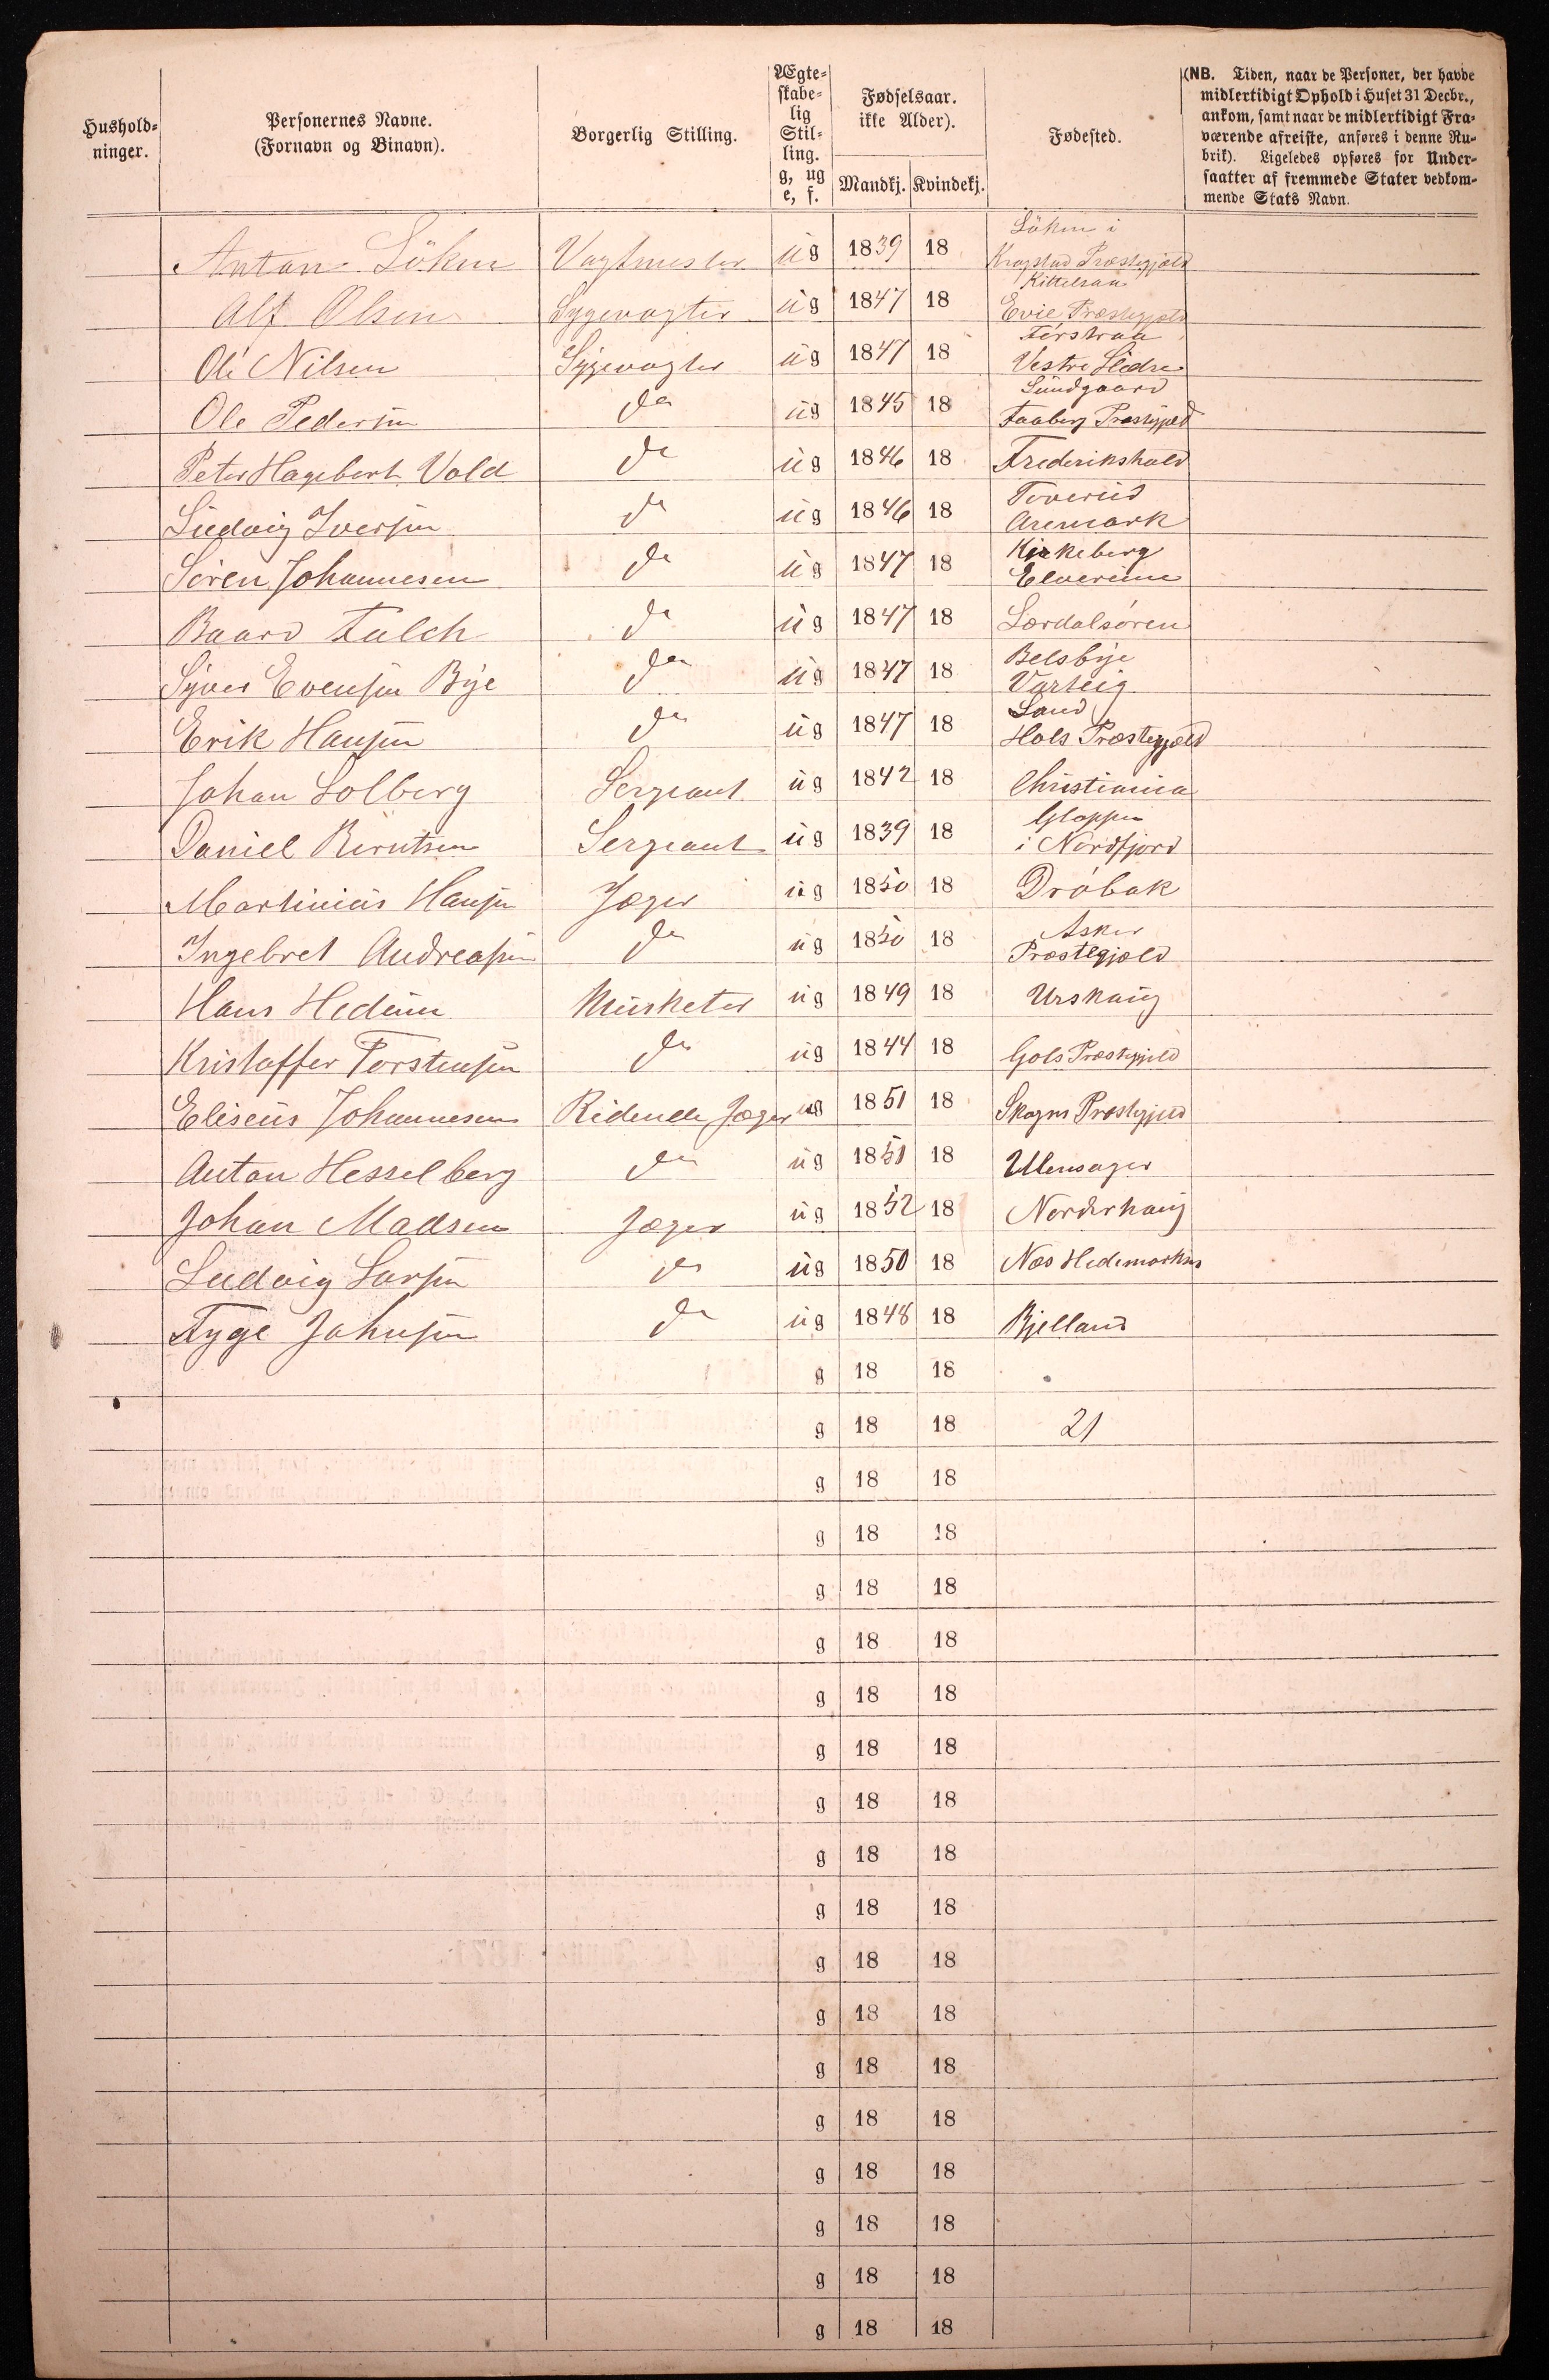 Hushold-
ninger.
Personernes Navne.
(Fornavn og Binavn).
Borgerlig Stilling.
Ægte-
skabe-
lig
Stil-
ling.
g, ug
e, f.
Fødselsaar.
ikke Alder).
Mandkj. Kvindekj.
Fødested.
(NB. Tiden, naar de Personer, der havde
midlertidigt Ophold i Huset 31 Decbr.,
ankom, samt naar de midlertidigt Fra-
værende afreiste, anføres i denne Ru-
brik). Ligeledes opføres for Under-
saatter af fremmede Stater vedkom-
mende Stats Navn.
Löken i
Anton Löken Vagtmester ug 1839 18 Kragstad Præstegjæld
Alf Olsen Sygevogter ug 1847 18 Evie Præstegjæld
Ole Nilsen Sygevogter ug 1847 18 Vestre Slidre
Sundgaard
Ole Pedersen do ug 1845 18 Faaberg Præstegjæld
Peter Hagebert Vold do ug 1846 18 Frederikshald
Toverud
Ludvig Iversen do ug 1846 18 Aremark
Kirkeberg
Sören Johannesen do ug 1847 18 Elverum
Baard Falch do ug 1847 18 Lærdalsören
Belsbye
Syver Evensen Bye do ug 1847 18 Varteig
Sand
Erik Hansen do ug 1847 18 Hols Præstegjæld
Johan Solberg Sergeant ug 1842 18 Christiania
Gloppen
Daniel Berntsen Sergeant ug 1839 18 i Nordfjord
Martinius Hansen Jæger ug 1850 18 Dröbak
Asker
Ingebret Andreasen do ug 1850 18 Præstegjæld
Hans Hedum Musketer ug 1849 18 Urskaug
Kristoffer Torstensen do ug 1844 18 Gols Præstegjæld
Eliseus Johannesen Ridende Jæger ug 1851 18 Skogns Præstegjæld
Anton Hesselberg do ug 1851 18 Ullensager
Johan Madsen Jæger ug 1852 18 Norderhaug
Ludvig Larsen do ug 1850 18 Næs Hedemarken
Tyge Johnsen do ug 1848 18 Bjelland
g 18 18
g 18 18 21
g 18 18
g 18 18
g 18 18
g 18 18
g 18 18
g 18 18
g 18 18
g 18 18
g 18 18
g 18 18
g 18 18
g 18 18
g 18 18
g 18 18
g 18 18
g 18 18
g 18 18